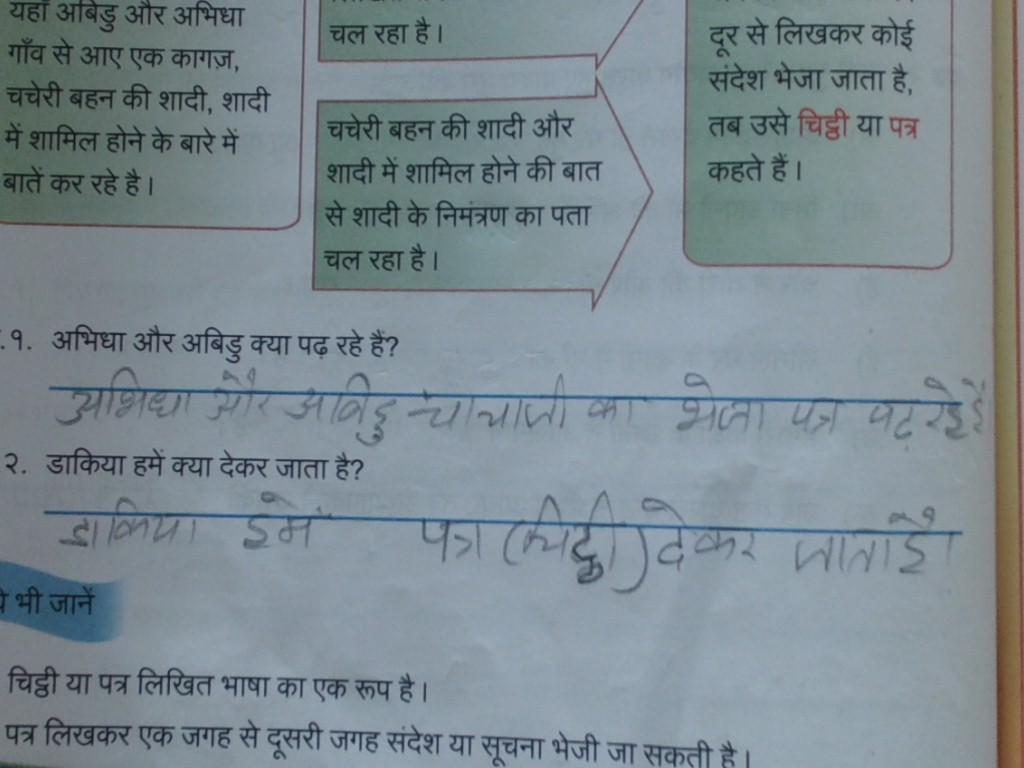 यहाँ अबिडु और अभिधा
गाँव से आए एक कागज़,
चचेरी बहन की शादी, शादी
में शामिल होने के बारे में
बातें कर रहे है।
चल रहा है।
चचेरी बहन की शादी और
शादी में शामिल होने की बात
से शादी के निमंत्रण का पता
चल रहा है।
दूर से लिखकर कोई
संदेश भेजा जाता है,
तब उसे चिट्ठी या पत्र
कहते हैं।
.१. अभिधा और अबिडु क्या पढ़ रहे हैं?
अभिधा और अबिडु चाचाजी का भेजा पत्र पढ़ रहे है
२. डाकिया हमें क्या देकर जाता है?
डाकिया हमें पत्र (चिट्ठी) देकर जाता है।
ये भी जानें
चिट्ठी या पत्र लिखित भाषा का एक रूप है।
पत्र लिखकर एक जगह से दूसरी जगह संदेश या सूचना भेजी जा सकती है।